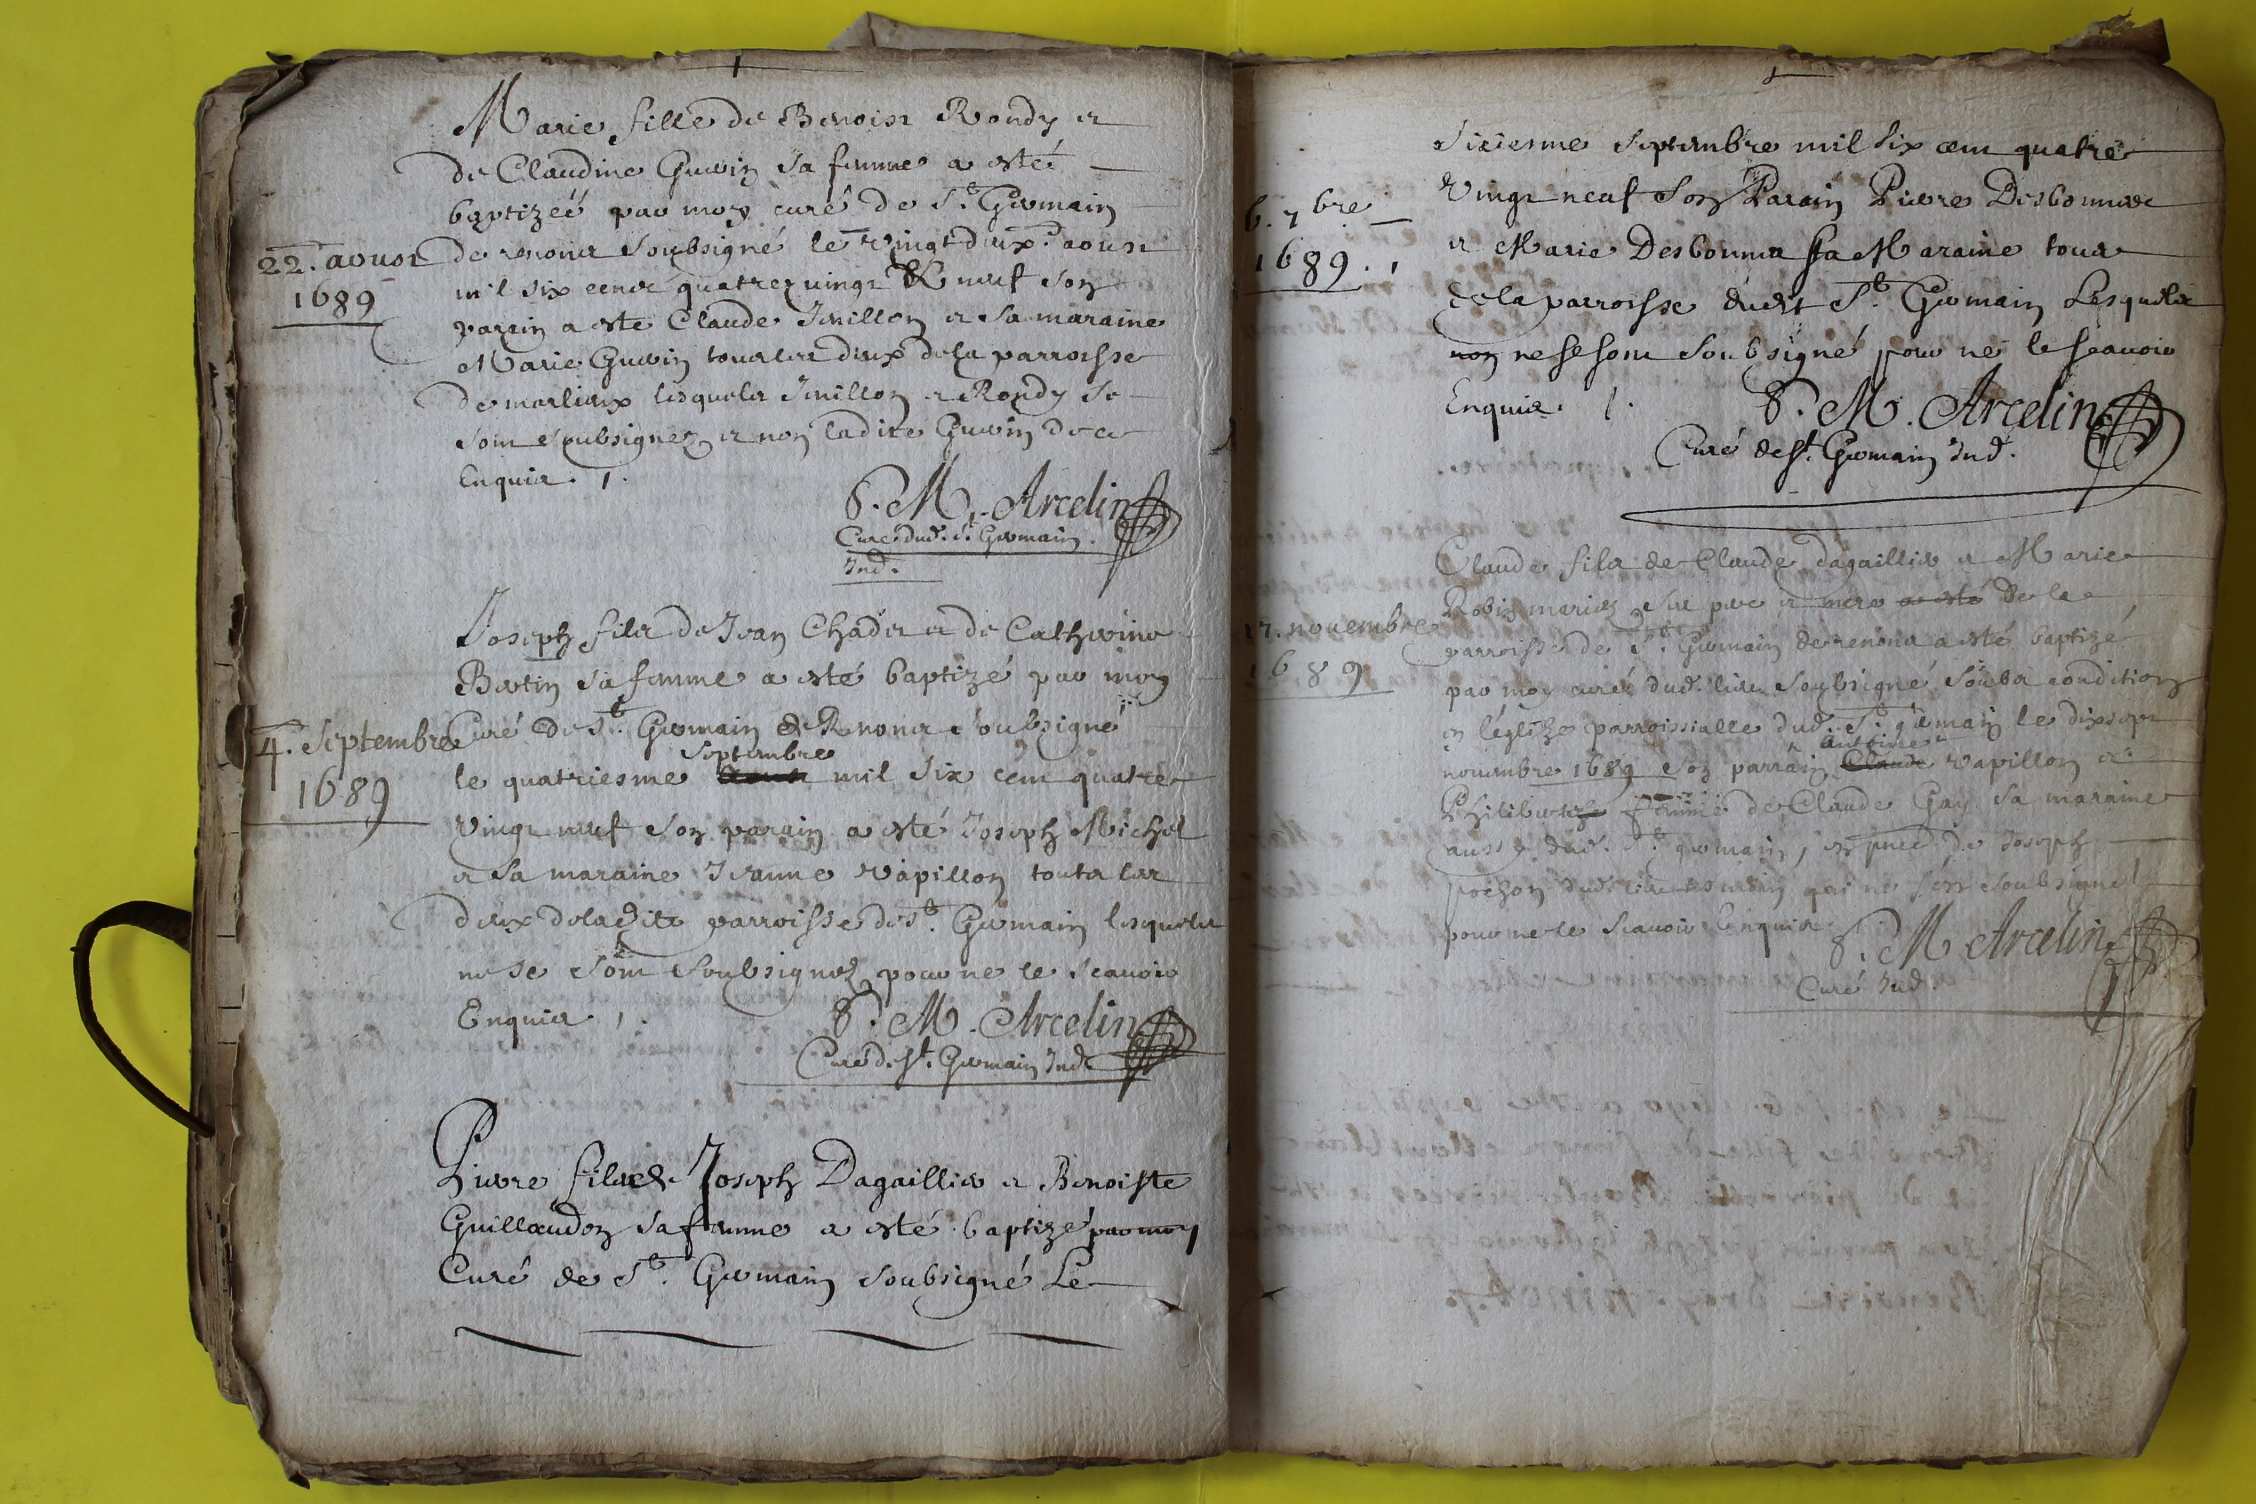 Marie fille de Benoist Rondy et
de Claudine Guerin sa femme a esté
baptizeé par moy curé de St. Germain
22. aoust
1689
de renons soubsigné le vingt deux aoust
mil six cents quatre vingt & neuf son
parrain a esté Claude Juillon et sa maraine
Marie Guerin tous les deux de la parroisse
de marlieux lesquels Juillon et Rondy se
sont soubsignez et non ladite Guerin de ce
Enquis.
P. M. Arcelin
Curé dud. St Germain.
Ind.
Joseph fils de Jean Chadet et de Catherine
Bertin sa femme a esté baptizé par moy
4. Septembre
1689
Curé de St. Germain de Renons soubsigné
le quatriesme septembre mil six cent quatre
vingt neuf son parain a esté Joseph Michel
et sa maraine Jeanne Papillon touts les
deux deladite parroisse de St. Germain lesquels
ne se sont soubsignez pour ne le scavoir
Enquis.
P. M. Arcelin
Curé de St. Germain Ind
Pierre fils de Joseph Dagaillier et Benoiste
Guillaudon sa femme a esté baptizé par moy
Curé de St. Germain soubsigné Le
Sixiesme septembre mil six cent quatre
6. 7bre
1689.
vingt neuf son Parain Pierre Desbonnes
et Marie Desbonnes sa Maraine tous
de la parroisse dudit St. Germain Lesquels
non ne se sont soubsigné pour ne le scavoir
Enquis.
P. M. Arcelin
Curé de St. Germain Ind.
Claude fils de Claude dagaillier et Marie
Robin mariez ses pere et mere a esté de la
17. novembre
1689
parroisse de St. Germain de renons a esté baptizé
par moy curé dud. lieu soubsigné soubs condition
en léglize parroissialle dud. St. germain le dixsept
novembre 1689 son parrain Claude antoine Papillon et
Philiberte femme de Claude Gay sa maraine
aussy dud. St. germain, en pnce de Joseph
pochon dud. lieu qui ne s'est soubsigné
pour ne le scavoir Enquis
P. M. Arcelin
Curé Ind.